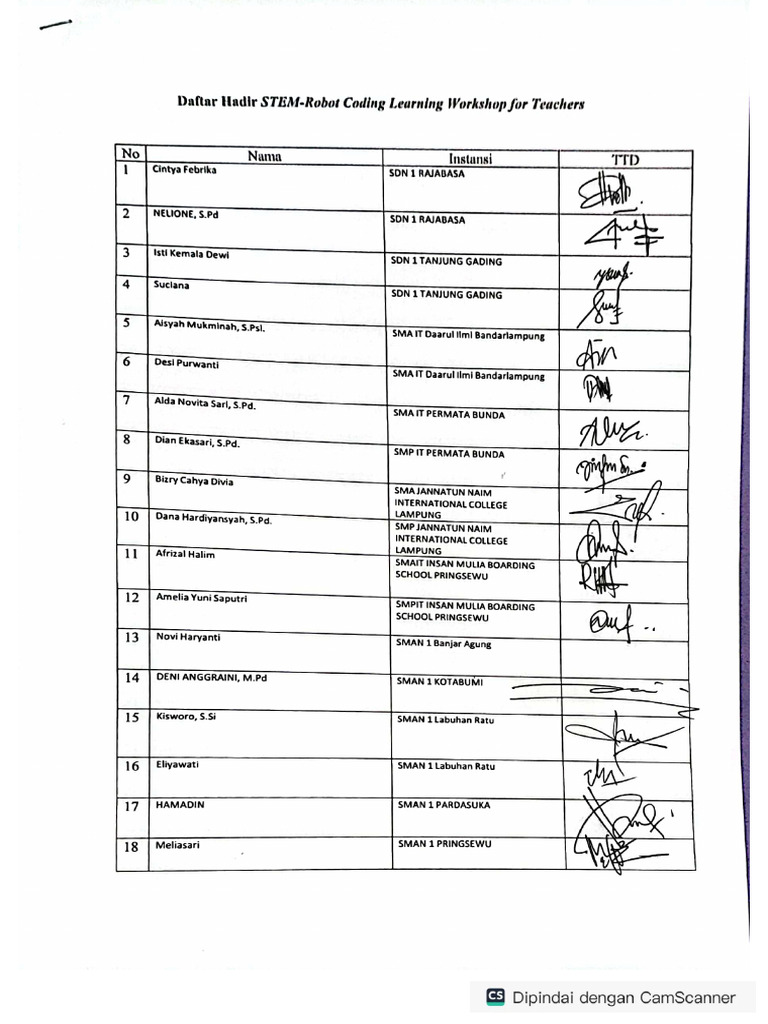 Daftar Hadir STEM-Robot Coding Learning Workshop for Teachers
No Nama Instansi TTD
1 Cintya Febrika SDN 1 RAJABASA
2 NELIONE, S.Pd SDN 1 RAJABASA
3 Isti Kemala Dewi SDN 1 TANJUNG GADING
4 Suciana SDN 1 TANJUNG GADING
5 Aisyah Mukminah, S.Psi. SMA IT Daarul Ilmi Bandarlampung
6 Desi Purwanti SMA IT Daarul Ilmi Bandarlampung
7 Alda Novita Sari, S.Pd. SMA IT PERMATA BUNDA
8 Dian Ekasari, S.Pd. SMP IT PERMATA BUNDA
9 Bizry Cahya Divia SMA JANNATUN NAIM
INTERNATIONAL COLLEGE
LAMPUNG
10 Dana Hardiyansyah, S.Pd. SMP JANNATUN NAIM
INTERNATIONAL COLLEGE
LAMPUNG
11 Afrizal Halim SMAIT INSAN MULIA BOARDING
SCHOOL PRINGSEWU
12 Amelia Yuni Saputri SMPIT INSAN MULIA BOARDING
SCHOOL PRINGSEWU
13 Novi Haryanti SMAN 1 Banjar Agung
14 DENI ANGGRAINI, M.Pd SMAN 1 KOTABUMI
15 Kisworo, S.Si SMAN 1 Labuhan Ratu
16 Eliyawati SMAN 1 Labuhan Ratu
17 HAMADIN SMAN 1 PARDASUKA
18 Meliasari SMAN 1 PRINGSEWU
CS Dipindai dengan CamScanner